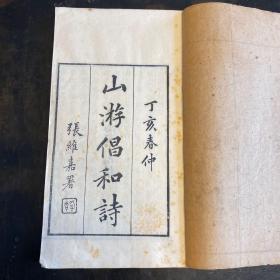 丁亥春仲
山游倡和詩
張維嘉署